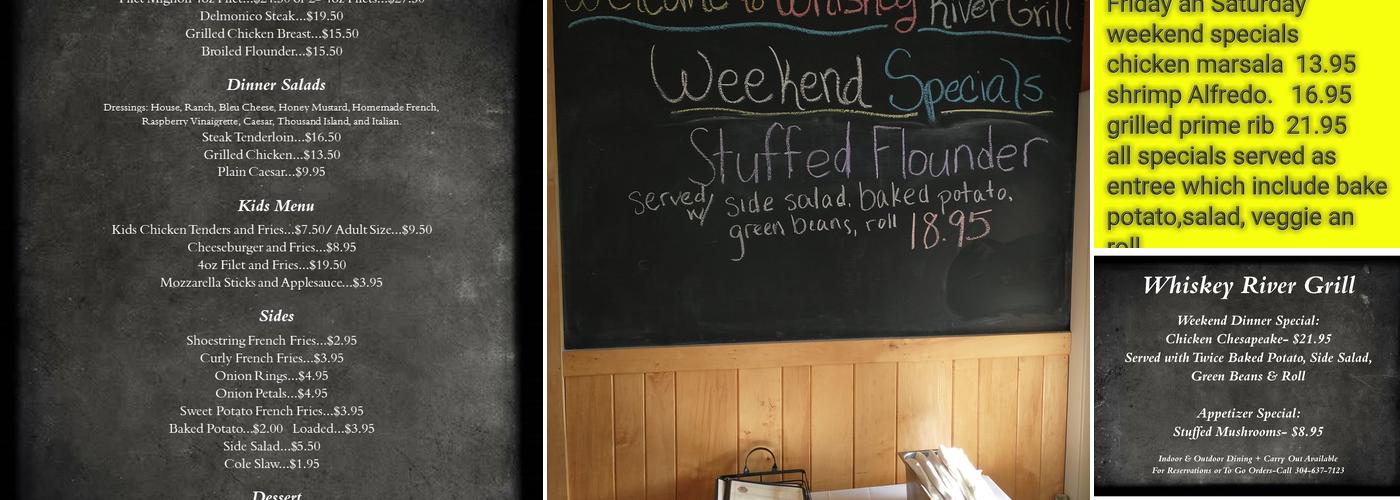 Filet Mignon 4oz Filet...$24.50 or 2- 4oz Filets...$27.50
Delmonico Steak...$19.50
Grilled Chicken Breast...$15.50
Broiled Flounder...$15.50
Dinner Salads
Dressings: House, Ranch, Bleu Cheese, Honey Mustard, Homemade French,
Raspberry Vinaigrette, Caesar, Thousand Island, and Italian.
Steak Tenderloin...$16.50
Grilled Chicken...$13.50
Plain Caesar...$9.95
Kids Menu
Kids Chicken Tenders and Fries...$7.50/ Adult Size...$9.50
Cheeseburger and Fries...$8.95
4oz Filet and Fries...$19.50
Mozzarella Sticks and Applesauce...$3.95
Sides
Shoestring French Fries...$2.95
Curly French Fries...$3.95
Onion Rings...$4.95
Onion Petals...$4.95
Sweet Potato French Fries...$3.95
Baked Potato...$2.00 Loaded...$3.95
Side Salad...$5.50
Cole Slaw...$1.95
Dessert
Welcome to Whiskey River Grill
Weekend Specials
Stuffed Flounder
served w/ side salad, baked potato,
green beans, roll 18.95
Friday an Saturday
weekend specials
chicken marsala 13.95
shrimp Alfredo. 16.95
grilled prime rib 21.95
all specials served as
entree which include bake
potato,salad, veggie an
roll
Whiskey River Grill
Weekend Dinner Special:
Chicken Chesapeake- $21.95
Served with Twice Baked Potato, Side Salad,
Green Beans & Roll
Appetizer Special:
Stuffed Mushrooms- $8.95
Indoor & Outdoor Dining + Carry Out Available
For Reservations or To Go Orders-Call 304-637-7123